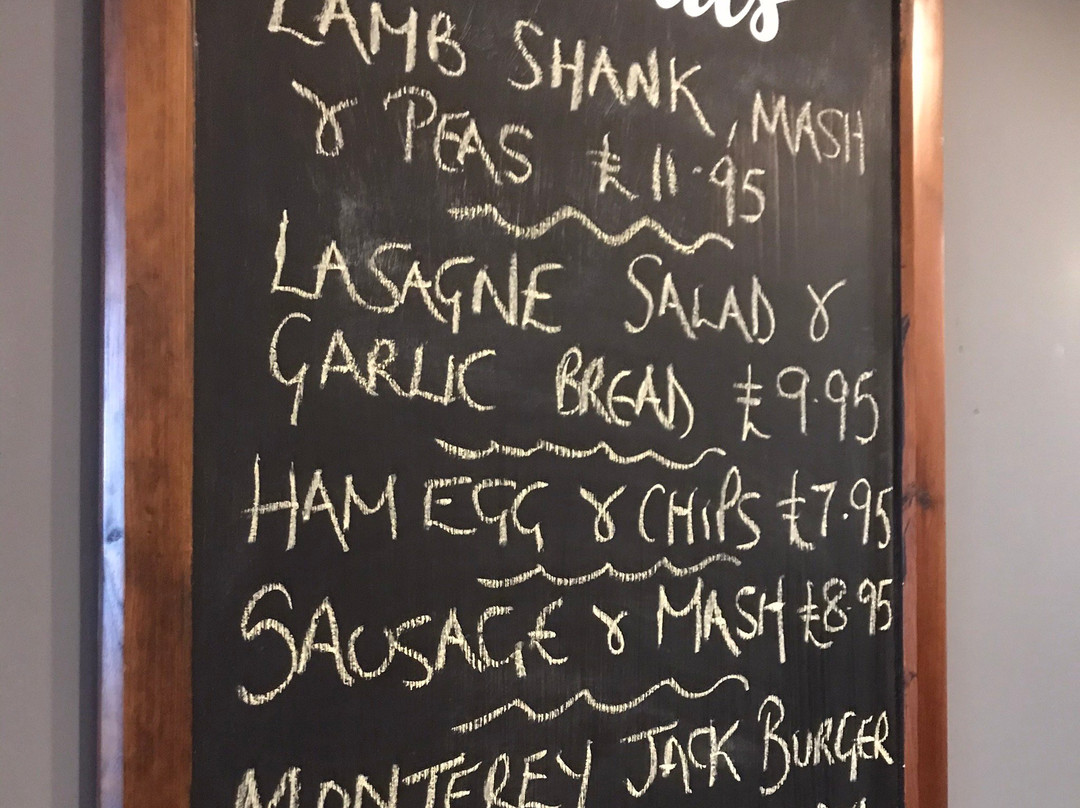 LAMB SHANK, MASH
& PEAS £11.95
LASAGNE SALAD &
GARLIC BREAD £9.95
HAM EGG & CHIPS £7.95
SAUSAGE & MASH £8.95
MONTEREY JACK BURGER